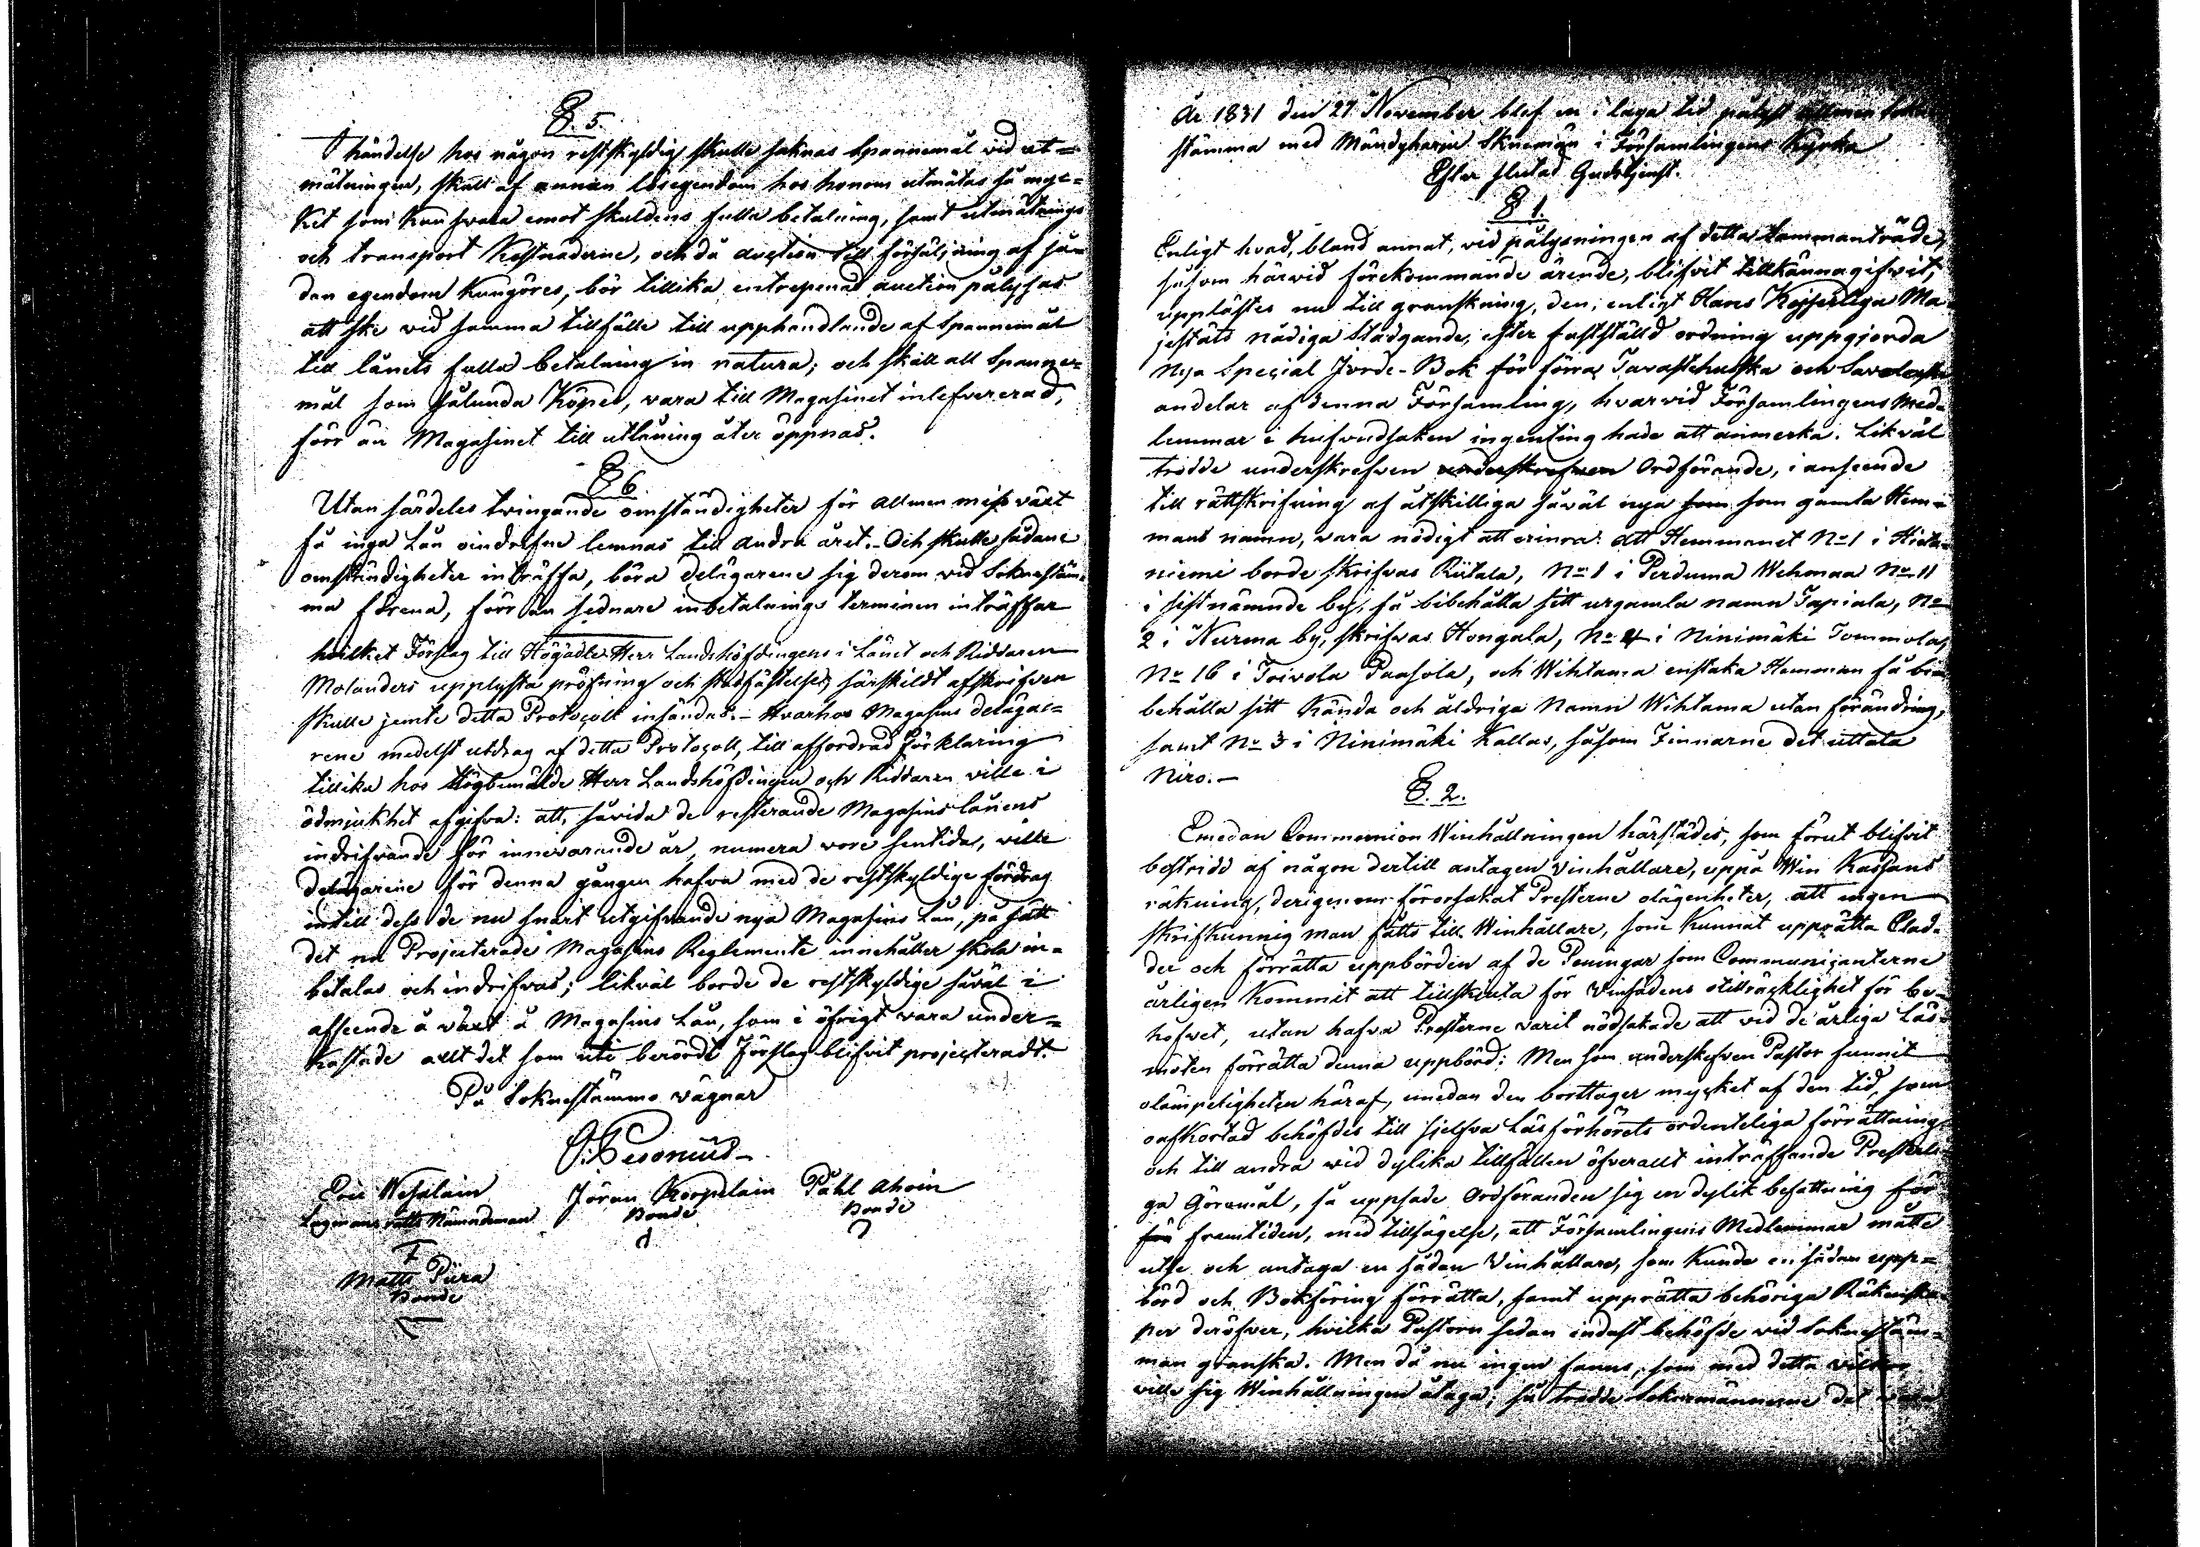 §. 5.
I händelse hos någon restskyldig skulle saknas Spannemål vid ut=
mätningen, skall af annan lösegendom hos honom utmätas så myc=
ket som kan svara emot skuldens fulla betalning, samt utmätnings
och transport kostnaderne, och då auction till försäljning af så=
dan egendom kungöres, bör tillika entrepenad auction pålysas
att ske vid samma tillfälle till upphandlande af Spannemål
till lånets fulla betalning in natura; och skall all Spanne=
mål som sålunda köpes, vara till Magasinet inlefvererad,
förr än Magasinet till utlåning åter öppnas.
§ 6.
Utan särdeles tvingande omständigheter för allmen missväxt
få inga Lån oindrefne lemnas till andra året. - Och skulle sådane
omständigheter inträffa, böra delägarene sig derom vid Soknestäm=
ma förena, förr än sednare inbetalnings terminen inträffar
hvilket Förslag till Högädle Herr Landshöfdingens i Länet och Riddaren
Molanders upplysta pröfning och stadfästelse, särskildt afskrifven
skulle jemte detta Protocoll insändas. - Hvarhos Magasins delägar=
rene medelst utdrag af detta Protocoll, till affordrad Förklaring
tillika hos Högbemälde Herr Landshöfdingen och Riddaren ville i
ödmjukhet afgifva: att, såvida de resterande Magasins lånens
indrifvande för innevarande år, numera vore sentida, ville
delägarene för denna gången hafva med de restskyldige fördrag
intill dess de nu snart utgifvande nya Magasins Lån, på sätt
det nu Projecterade Magasins Reglemente innehåller skola in=
betalas och indrifvas; likväl borde de restskyldige såväl i
afseende å växt å Magasins Lån, som i öfrigt vara under=
kastade allt det som uti berörde Förslag blifvit projecteradt.
På Soknestämmo vägnar
O: Pesonius
Eric Wesalain Jöran Korpelain Påhl Ahoin
Lagmans rätts Nämndeman Bonde Bonde
Matti Piira
Bonde
År 1831 den 27 November blef en i laga tid pålyst allmen Sokne
stämma med Mändyharju Sknemän i Församlingens Kyrka
Efter slutad Gudstjenst.
§ 1.
Enligt hvad, bland annat, vid pålysningen af detta Sammanträde,
såsom härvid förekommande ärende, blifvit tillkännagifvit,
upplästes nu till granskning, den, enligt Hans Kejserliga Ma-
jestäts nådiga Stadgande, efter fastställd ordning uppgjorda
Nya Special Jorde-Bok för förra Tavastehuska och Savolaxska
andelar af denna Församling, hvarvid Församlingens Med-
lemmar i hufvudsaken ingenting hade att anmerka. Likväl
trodde underskrefven underskrefven Ordförande, i anseende
till rättskrifning af åtskilliga såväl nya som som gamla Hem-
mans namn, vara nödigt att erinra: att Hemmanet No 1 i Hieta-
niemi borde skrifvas Riitala, No 1 i Perduma Wehmaa No 11
i sistnämnde by, få bibehålla sitt urgamla namn Tapiala, No
2 i Nurma by, skrifvas Hongala, No 4 i Ninimäki Tommola,
No 16 i Toivola Paasola, och Wihtama enstaka Hemman få bi-
behålla sitt kända och åldriga Namn Wihtama utan förändring,
samt No 3 i Ninimäki Kallas, såsom Finnarne det uttala
Niro. -
§. 2.
Emedan Communion Winhållningen härstädes, som förut blifvit
bestridd af någon dertill antagen Vinhållare, uppå Win Kassans
räkning, derigenom förorsakat Presterne olägenheter, att ingen
skrifkunnig man fåtts till Winhållare, som kunnat upprätta Clad-
der och förrätta uppbörden af de Peningar som Communicanterne
årligen kommit att tillskjuta för Vinsädens otillräcklighet för be-
hofvet, utan hafva Presterne varit nödsakade att vid de årliga Läs-
möten förrätta denna uppbörd: Men som underskrefven Pastor funnit
olämpeligheten häraf, emedan den borttager mycket af den tid, som
oafkortad behöfdes till sjelfva Läsförhörets ordenteliga förrättning
och till andra vid dylika tillfällen öfverallt inträffande Prestli-
ga Göromål, så uppsade Ordföranden sig en dylik befattning för
för framtiden, med tillsägelse, att Församlingens Medlemmar måtte
utse och antaga en sådan Vinhållare, som kunde en sådan upp=
börd och Bokföring förrätta, samt upprätta behöriga Räkenska-
per deröfver, hvilka Pastorn sedan endast behöfde vid Soknestäm-
man granska. Men då nu ingen fanns, som med detta vilkor
ville sig Winhållningen åtaga; så trodde Soknemännerne det